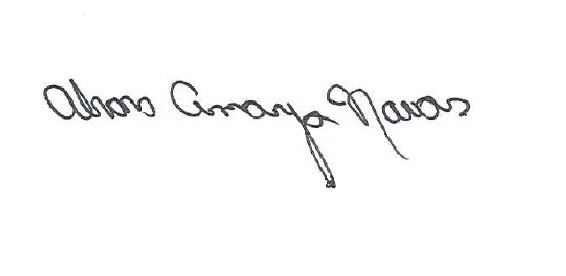 Alvaro Amaya Navas